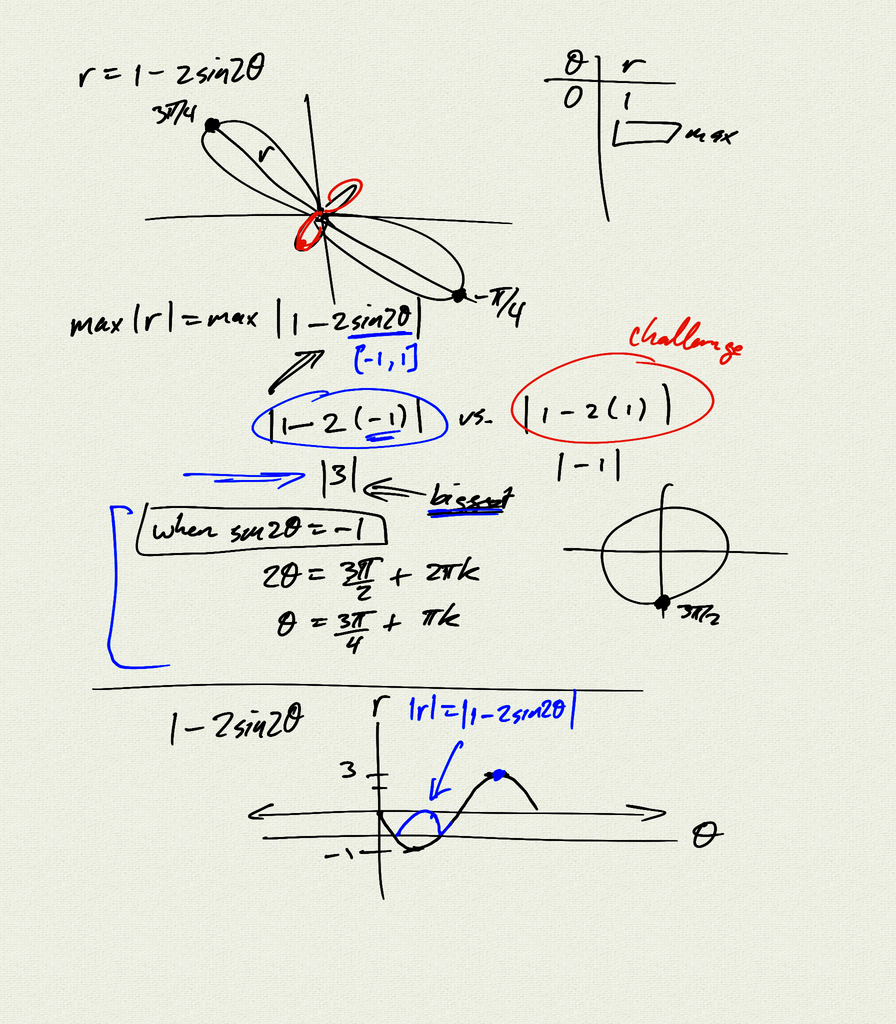 r = 1 - 2sin2θ
θ r
0 1
max
3π/4
r
-π/4
max |r| = max |1 - 2sin2θ|
[-1, 1]
challenge
|1 - 2(-1)| vs. |1 - 2(1)|
|3| |-1|
biggest
when sin2θ = -1
2θ = 3π/2 + 2πk
θ = 3π/4 + πk
3π/2
1 - 2sin2θ
r |r| = |1 - 2sin2θ|
3
θ
-1